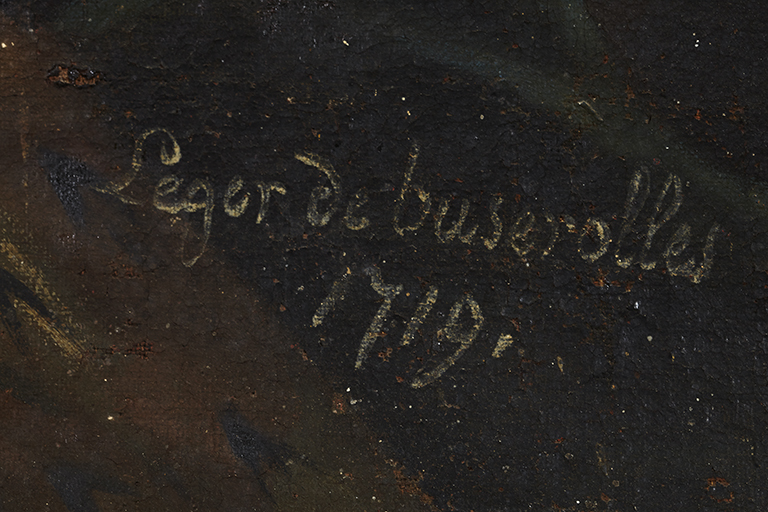 Leger de buserolles
1719.